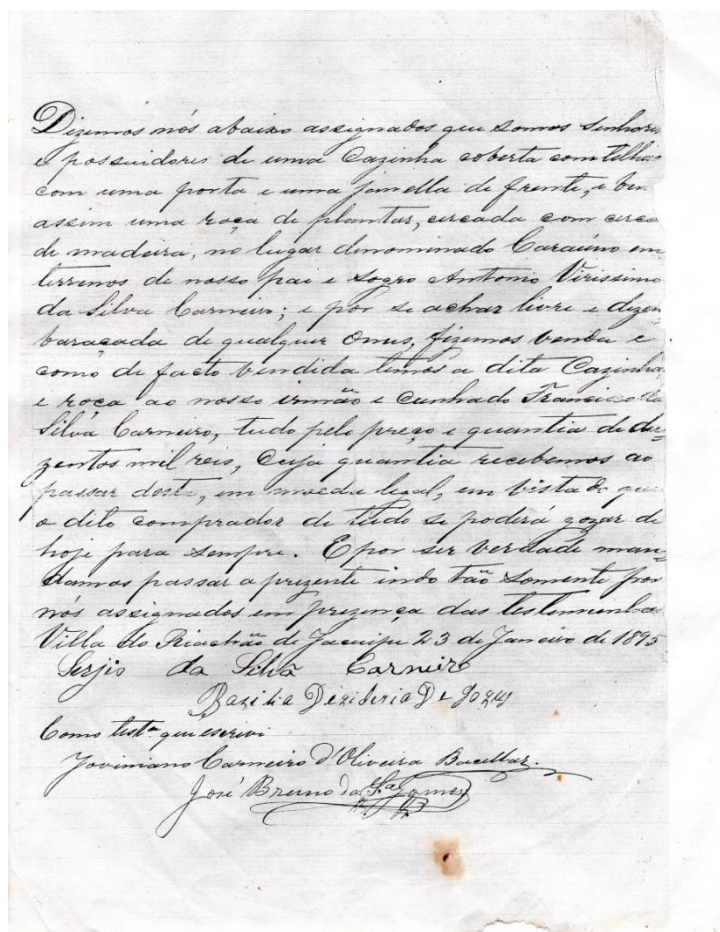 Dizemos nós abaixo assignados que somos senhores
e possuidores de uma Cazinha coberta com telhas
com uma porta e uma janella de frente, e bem
assim uma roça de plantar, cercada com cerca
de madeira, no lugar denominado Caraúno em
terrenos de nosso pai e sogro Antonio Virissimo
da Silva Carneiro; e por se achar livre e dizem
baraçada de qualquer Onus, fizemos venda e
como de facto vendida temos a dita Cazinha
e roça ao nosso irmão e cunhado Francisco da
Silva Carneiro, tudo pelo preço e quantia de du-
zentos mil reis, Cuja quantia recebemos ao
passar deste, em moeda legal, em vista do que
o dito comprador de tudo se poderá gozar de
hoje para sempre. E por ser verdade man-
damos passar a prezente indo tão somente por
nós assignados em prezença das testemunhas
Villa do Riachão de Jacuipe 23 de Janeiro de 1895
Serjio da Silva Carneiro
Bazilia Dezideria De Jozus
Como testa. que escrivi
Joviniano Carneiro d'Oliveira Bacellar.
José Bruno da Sa. Gomes